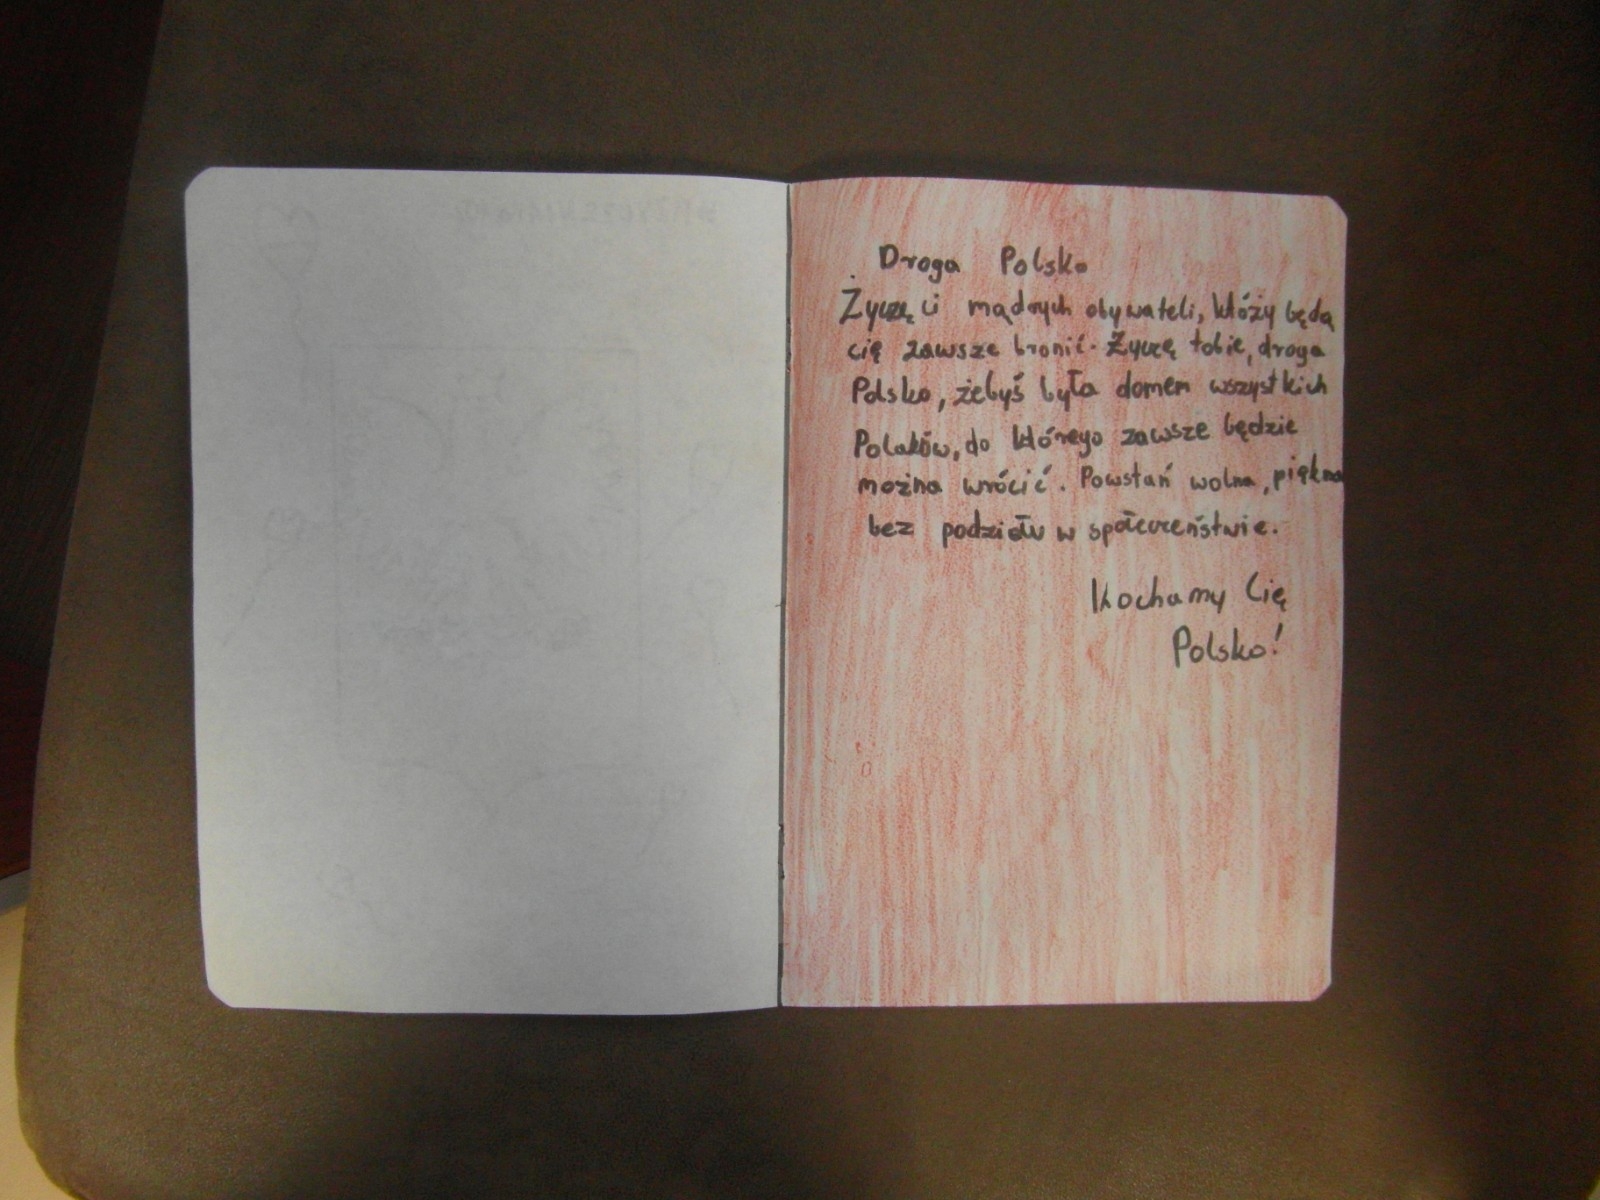 Droga Polsko
Życzę ci mądrych obywateli, któży będą
cię zawsze bronić. Życzę tobie, droga
Polsko, żebyś była domem wszystkich
Polaków, do którego zawsze będzie
można wrócić. Powstań wolna, piękna
bez podziału w społeczeństwie.
Kochamy Cię
Polsko!